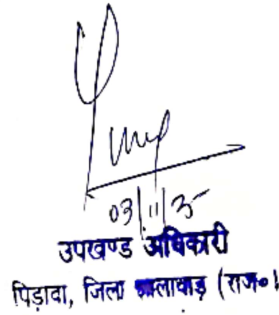 03/11/25
उपखण्ड अधिकारी
पिड़ावा, जिला झालावाड़ (राज०)